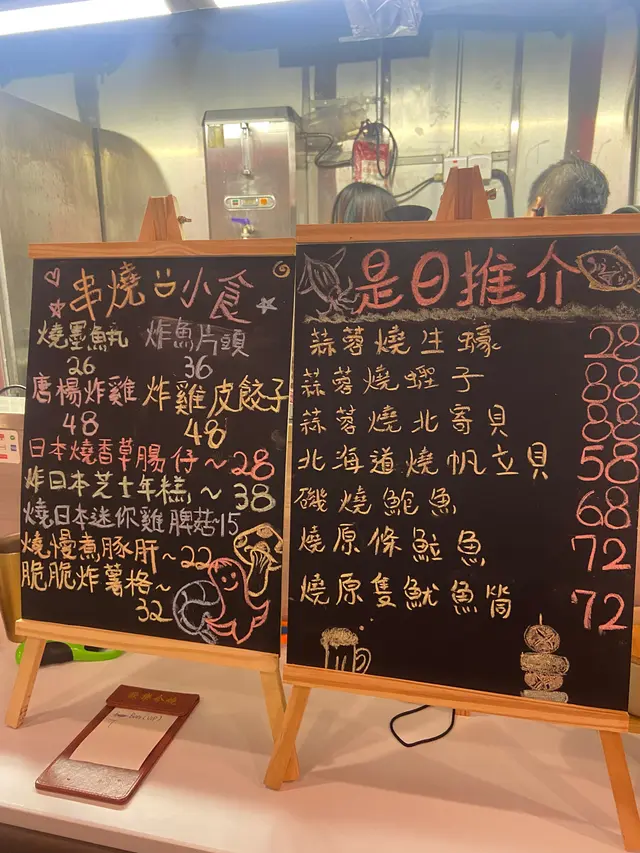 串燒小食
燒墨魚丸 炸魚片頭
26 36
唐楊炸雞 炸雞皮餃子
48 48
日本燒香草腸仔~28
炸日本芝士年糕~38
燒日本迷你雞脾菇~15
燒慢煮豚肝~22
脆脆炸薯格~
32
是日推介
蒜蓉燒生蠔 28
蒜蓉燒蟶子 88
蒜蓉燒北寄貝 88
北海道燒帆立貝 58
磯燒鮑魚 68
燒原條魚 72
燒原隻魷魚筒 72